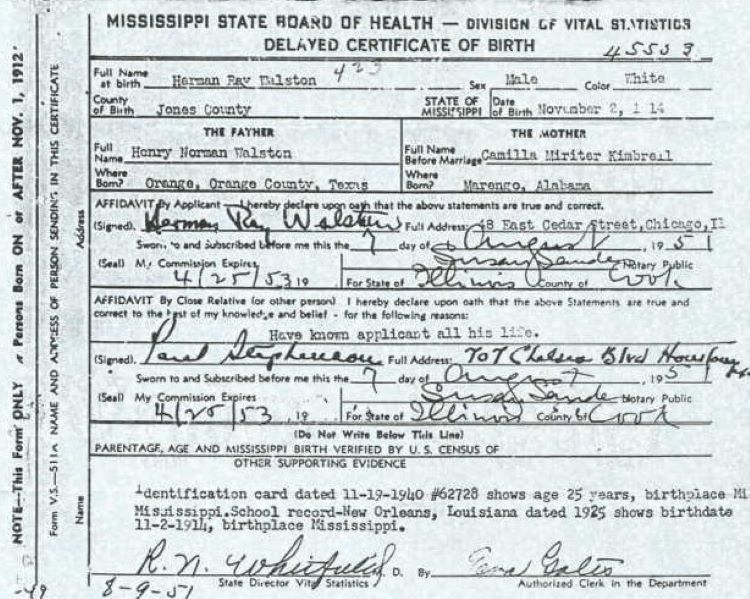 MISSISSIPPI STATE BOARD OF HEALTH — DIVISION OF VITAL STATISTICS
DELAYED CERTIFICATE OF BIRTH 45503
423
Full Name at birth Herman Ray Walston Sex Male Color White
County of Birth Jones County STATE OF MISSISSIPPI Date of Birth November 2, 1 14
THE FATHER THE MOTHER
Full Name Henry Norman Walston Full Name Before Marriage Camilla Miriter Kimbrell
Where Born? Orange, Orange County, Texas Where Born? Marengo, Alabama
AFFIDAVIT By Applicant — I hereby declare upon oath that the above statements are true and correct.
(Signed). Herman Ray Walston Full Address: 48 East Cedar Street, Chicago, Il
Sworn to and Subscribed before me this the 7 day of August, 1951
(Seal) My Commission Expires Susan Sande Notary Public
4/25/53 19 For State of Illinois County of Cook
AFFIDAVIT By Close Relative (or other person) I hereby declare upon oath that the above Statements are true and
correct to the best of my knowledge and belief - for the following reasons:
Have known applicant all his life.
(Signed). Paul Stephenson Full Address: 707 Chelsea Blvd Houston
Sworn to and Subscribed before me this the 7 day of August, 1951
(Seal) My Commission Expires Susan Sande Notary Public
4/25/53, 19 For State of Illinois County of Cook
(Do Not Write Below This Line)
PARENTAGE, AGE AND MISSISSIPPI BIRTH VERIFIED BY U. S. CENSUS OF
OTHER SUPPORTING EVIDENCE
Identification card dated 11-19-1940 #62728 shows age 25 years, birthplace MI
Mississippi.School record-New Orleans, Louisiana dated 1925 shows birthdate
11-2-1914, birthplace Mississippi.
R. N. Whitfield, D. By Gates
8-9-51 State Director Vital Statistics Authorized Clerk in the Department
NOTE—This Form ONLY Persons Born ON or AFTER NOV. 1, 1912
Form V.S.—511A NAME AND ADDRESS OF PERSON SENDING IN THIS CERTIFICATE
Name Address
-49